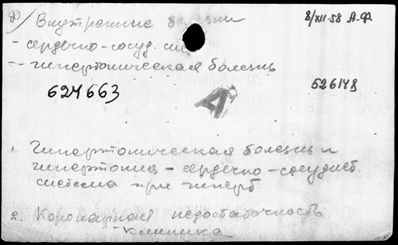 8) Внутренние болезни
8/XII-58 А.Ф.
- сердечно-сосуд. сис
- - гипертоническая болезнь
624663
526148
А
1. Гипертоническая болезнь и
гипертония - сердечно-сосудист.
система при гиперт
2. Коронарная недостаточность
- клиника